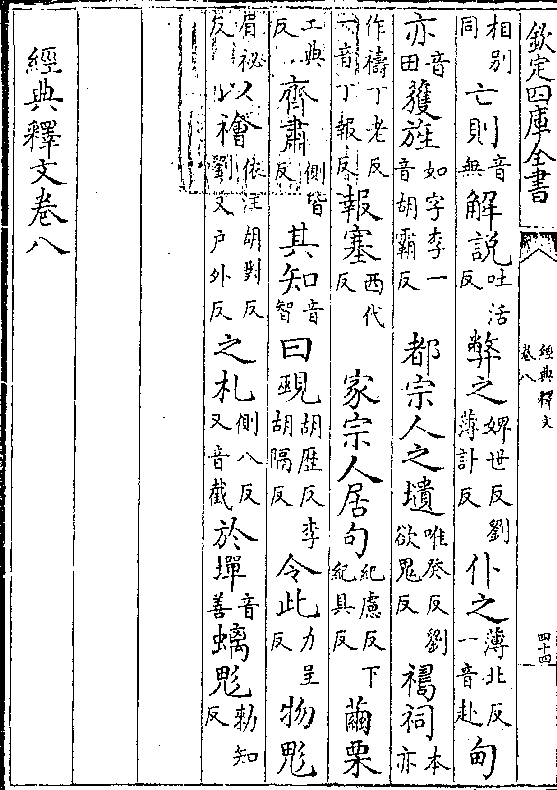 欽定四庫全書 經典釋文 卷八 四十四
相別同 亡則音無 解說吐活反 弊之婢世反劉薄計反 仆之薄北反一音赴 甸
亦音田 獲旌如字李一音胡霸反 都宗人之壝唯癸反劉欲鬼反 禂祠本亦
作禱丁老反一音丁報反 報塞西代反 家宗人居句紀慮反下紀具反 繭栗
工典反 齊肅側皆反 其知音智 曰覡胡歷反李胡隔反 令此力呈反 物鬽
眉祕反 以禬依注胡對反劉又戶外反 之札側八反又音截 於墠音善 螭鬽勅知反
經典釋文卷八